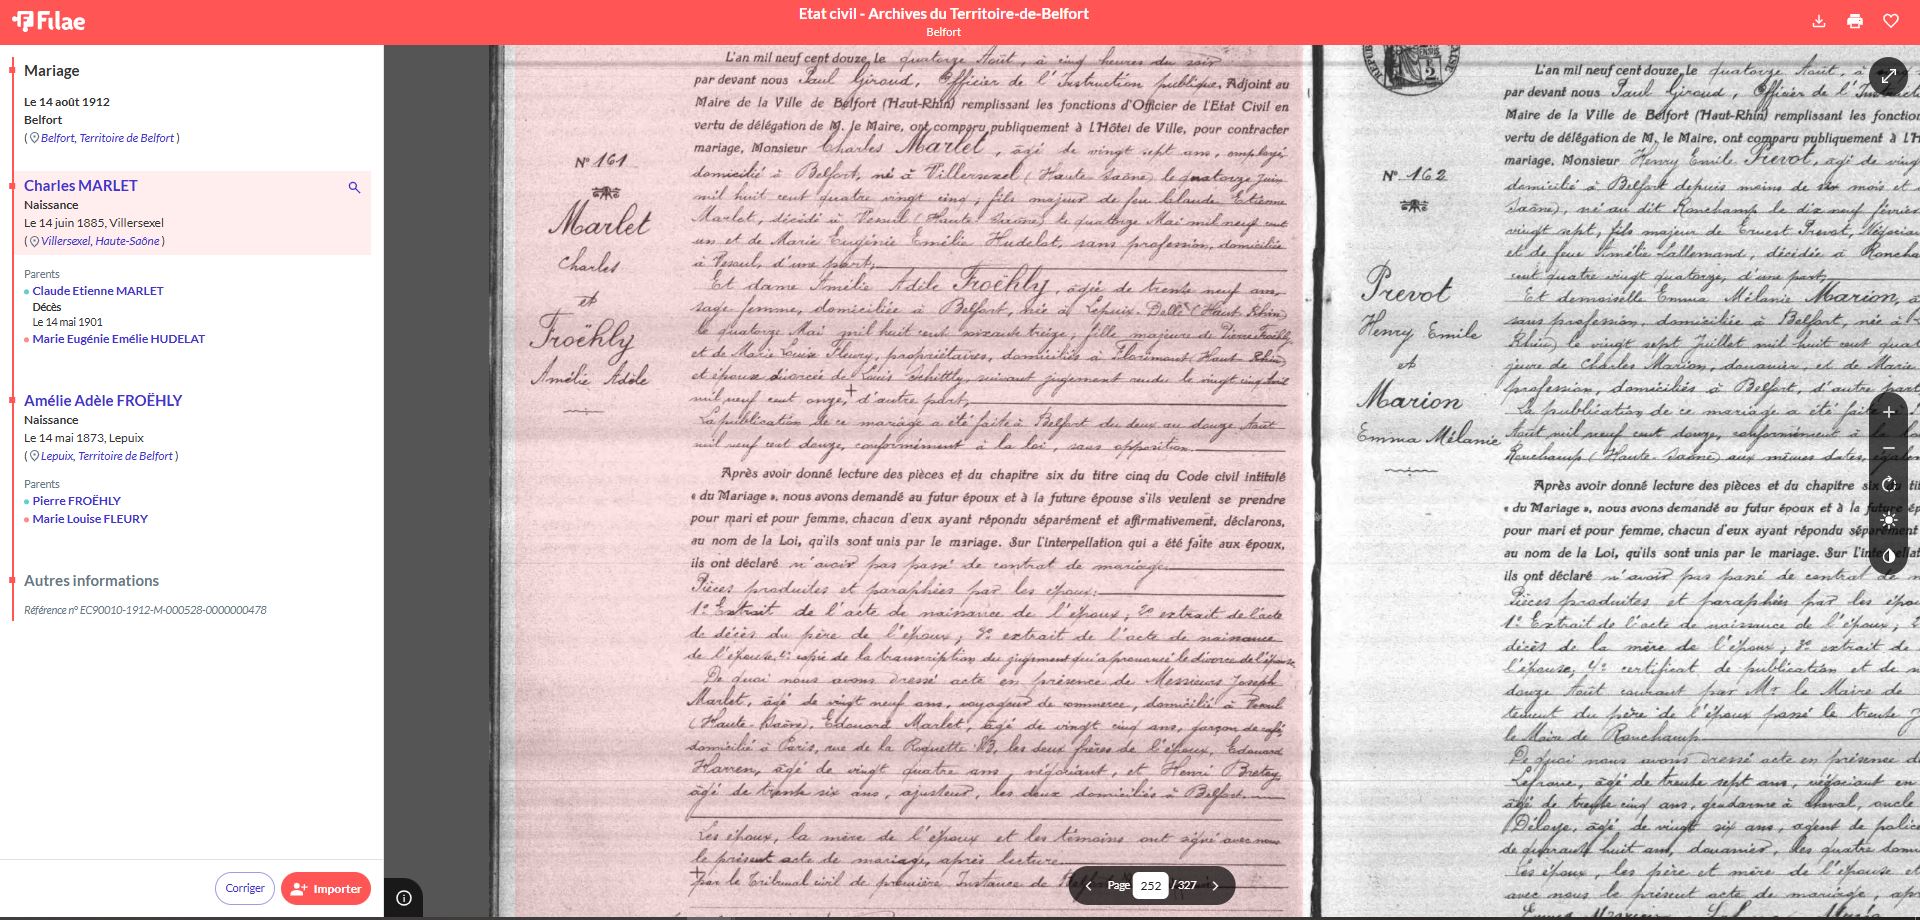 Filae
Etat civil - Archives du Territoire-de-Belfort
Belfort
Mariage
Le 14 août 1912
Belfort
( Belfort, Territoire de Belfort )
Charles MARLET
Naissance
Le 14 juin 1885, Villersexel
( Villersexel, Haute-Saône )
Parents
Claude Etienne MARLET
Décès
Le 14 mai 1901
Marie Eugénie Emélie HUDELAT
Amélie Adèle FROËHLY
Naissance
Le 14 mai 1873, Lepuix
( Lepuix, Territoire de Belfort )
Parents
Pierre FROËHLY
Marie Louise FLEURY
Autres informations
Référence n° EC90010-1912-M-000528-0000000478
Corriger
Importer
N° 161
Marlet
Charles
et
Froëhly
Amélie Adèle
L'an mil neuf cent douze, Le quatorze Août, à cinq heures du soir
par devant nous Paul Giroud, Officier de l'Instruction publique, Adjoint au
Maire de la Ville de Belfort (Haut-Rhin) remplissant les fonctions d'Officier de l'Etat Civil en
vertu de délégation de M. le Maire, ont comparu publiquement à l'Hôtel de Ville, pour contracter
mariage, Monsieur Charles Marlet, âgé de vingt sept ans, employé
domicilié à Belfort, né à Villersexel (Haute Saône) le quatorze Juin
mil huit cent quatre vingt cinq; fils majeur de feu Claude Etienne
Marlet, décédé à Vesoul (Haute Saône) le quatorze Mai mil neuf cent
un et de Marie Eugénie Emélie Hudelat, sans profession, domiciliée
à Vesoul, d'une part,
Et dame Amélie Adèle Froëhly, âgée de trente neuf ans,
sage femme, domiciliée à Belfort, née à Lepuix-Delle (Haut Rhin)
le quatorze Mai mil huit cent soixante treize; fille majeure de Pierre Froëhly
et de Marie Louise Fleury, propriétaires, domiciliés à Florimont (Haut Rhin)
et épouse divorcée de Louis Schittly, suivant jugement rendu le vingt cinq
mil neuf cent onze, d'autre part,
La publication de ce mariage a été faite à Belfort du deux au douze Août
mil neuf cent douze, conformément à la loi, sans opposition.
Après avoir donné lecture des pièces et du chapitre six du titre cinq du Code civil intitulé
« du Mariage », nous avons demandé au futur époux et à la future épouse s'ils veulent se prendre
pour mari et pour femme, chacun d'eux ayant répondu séparément et affirmativement, déclarons,
au nom de la Loi, qu'ils sont unis par le mariage. Sur l'interpellation qui a été faite aux époux,
ils ont déclaré n'avoir pas passé de contrat de mariage.
Pièces produites et paraphées par les époux:
1° Extrait de l'acte de naissance de l'époux; 2° extrait de l'acte
de décès du père de l'époux; 3° extrait de l'acte de naissance
de l'épouse, 4° copie de la transcription du jugement qui a prononcé le divorce de l'épouse.
De quoi nous avons dressé acte en présence de Messieurs Joseph
Marlet, âgé de vingt neuf ans, voyageur de commerce, domicilié à Vesoul
(Haute-Saône), Edouard Marlet, âgé de vingt cinq ans, garçon de café,
domicilié à Paris, rue de la Roquette 83, les deux frères de l'époux, Edouard
Harren, âgé de vingt quatre ans, négociant, et Henri Bretey,
âgé de trente six ans, ajusteur, les deux domiciliés à Belfort.
Les époux, la mère de l'époux et les témoins ont signé avec nous
le présent acte de mariage, après lecture.
par le Tribunal civil de première Instance de
N° 162
Prevot
Henry Emile
et
Marion
Emma Mélanie
L'an mil neuf cent douze, Le quatorze Août, à
par devant nous Paul Giroud, Officier de l'
Maire de la Ville de Belfort (Haut-Rhin) remplissant les fonction
vertu de délégation de M. le Maire, ont comparu publiquement à l'H
mariage, Monsieur Henry Emile Prevot, âgé de ving
domicilié à Belfort depuis moins de six mois et
Saône), né au dit Ronchamp le dix neuf février
vingt sept, fils majeur de Ernest Prevot, Négocian
et de feue Amélie Lallemand, décédée à Roncha
cent quatre vingt quatorze, d'une part,
Et demoiselle Emma Mélanie Marion,
sans profession, domiciliée à Belfort, née à
Rhin) le vingt sept Juillet mil huit cent quat
jeure de Charles Marion, douanier, et de Marie
profession, domiciliés à Belfort, d'autre part
La publication de ce mariage a été faite
Août mil neuf cent douze, conformément à la
Ronchamp (Haute-Saône) aux mêmes dates,
Après avoir donné lecture des pièces et du chapitre six du tit
« du Mariage », nous avons demandé au futur époux et à la future ép
pour mari et pour femme, chacun d'eux ayant répondu séparément et
au nom de la Loi, qu'ils sont unis par le mariage. Sur l'interpellat
ils ont déclaré n'avoir pas passé de contrat de m
Pièces produites et paraphées par les épou
1° Extrait de l'acte de naissance de l'époux; 2
décès de la mère de l'époux; 3° extrait de
l'épouse; 4° certificat de publication et de n
douze Août courant par Mr le Maire de
tement du père de l'époux passé le trente
le Maire de Ronchamp.
De quoi nous avons dressé acte en présence d
Lefranc, âgé de trente sept ans, négociant en
âgé de trente cinq ans, gendarme à cheval, oncle
Deloye, âgé de vingt six ans, agent de police
de quarante huit ans, douanier, les quatre domi
Les époux, les père et mère de l'épouse et
avec nous le présent acte de mariage, ap
Page 252 / 327